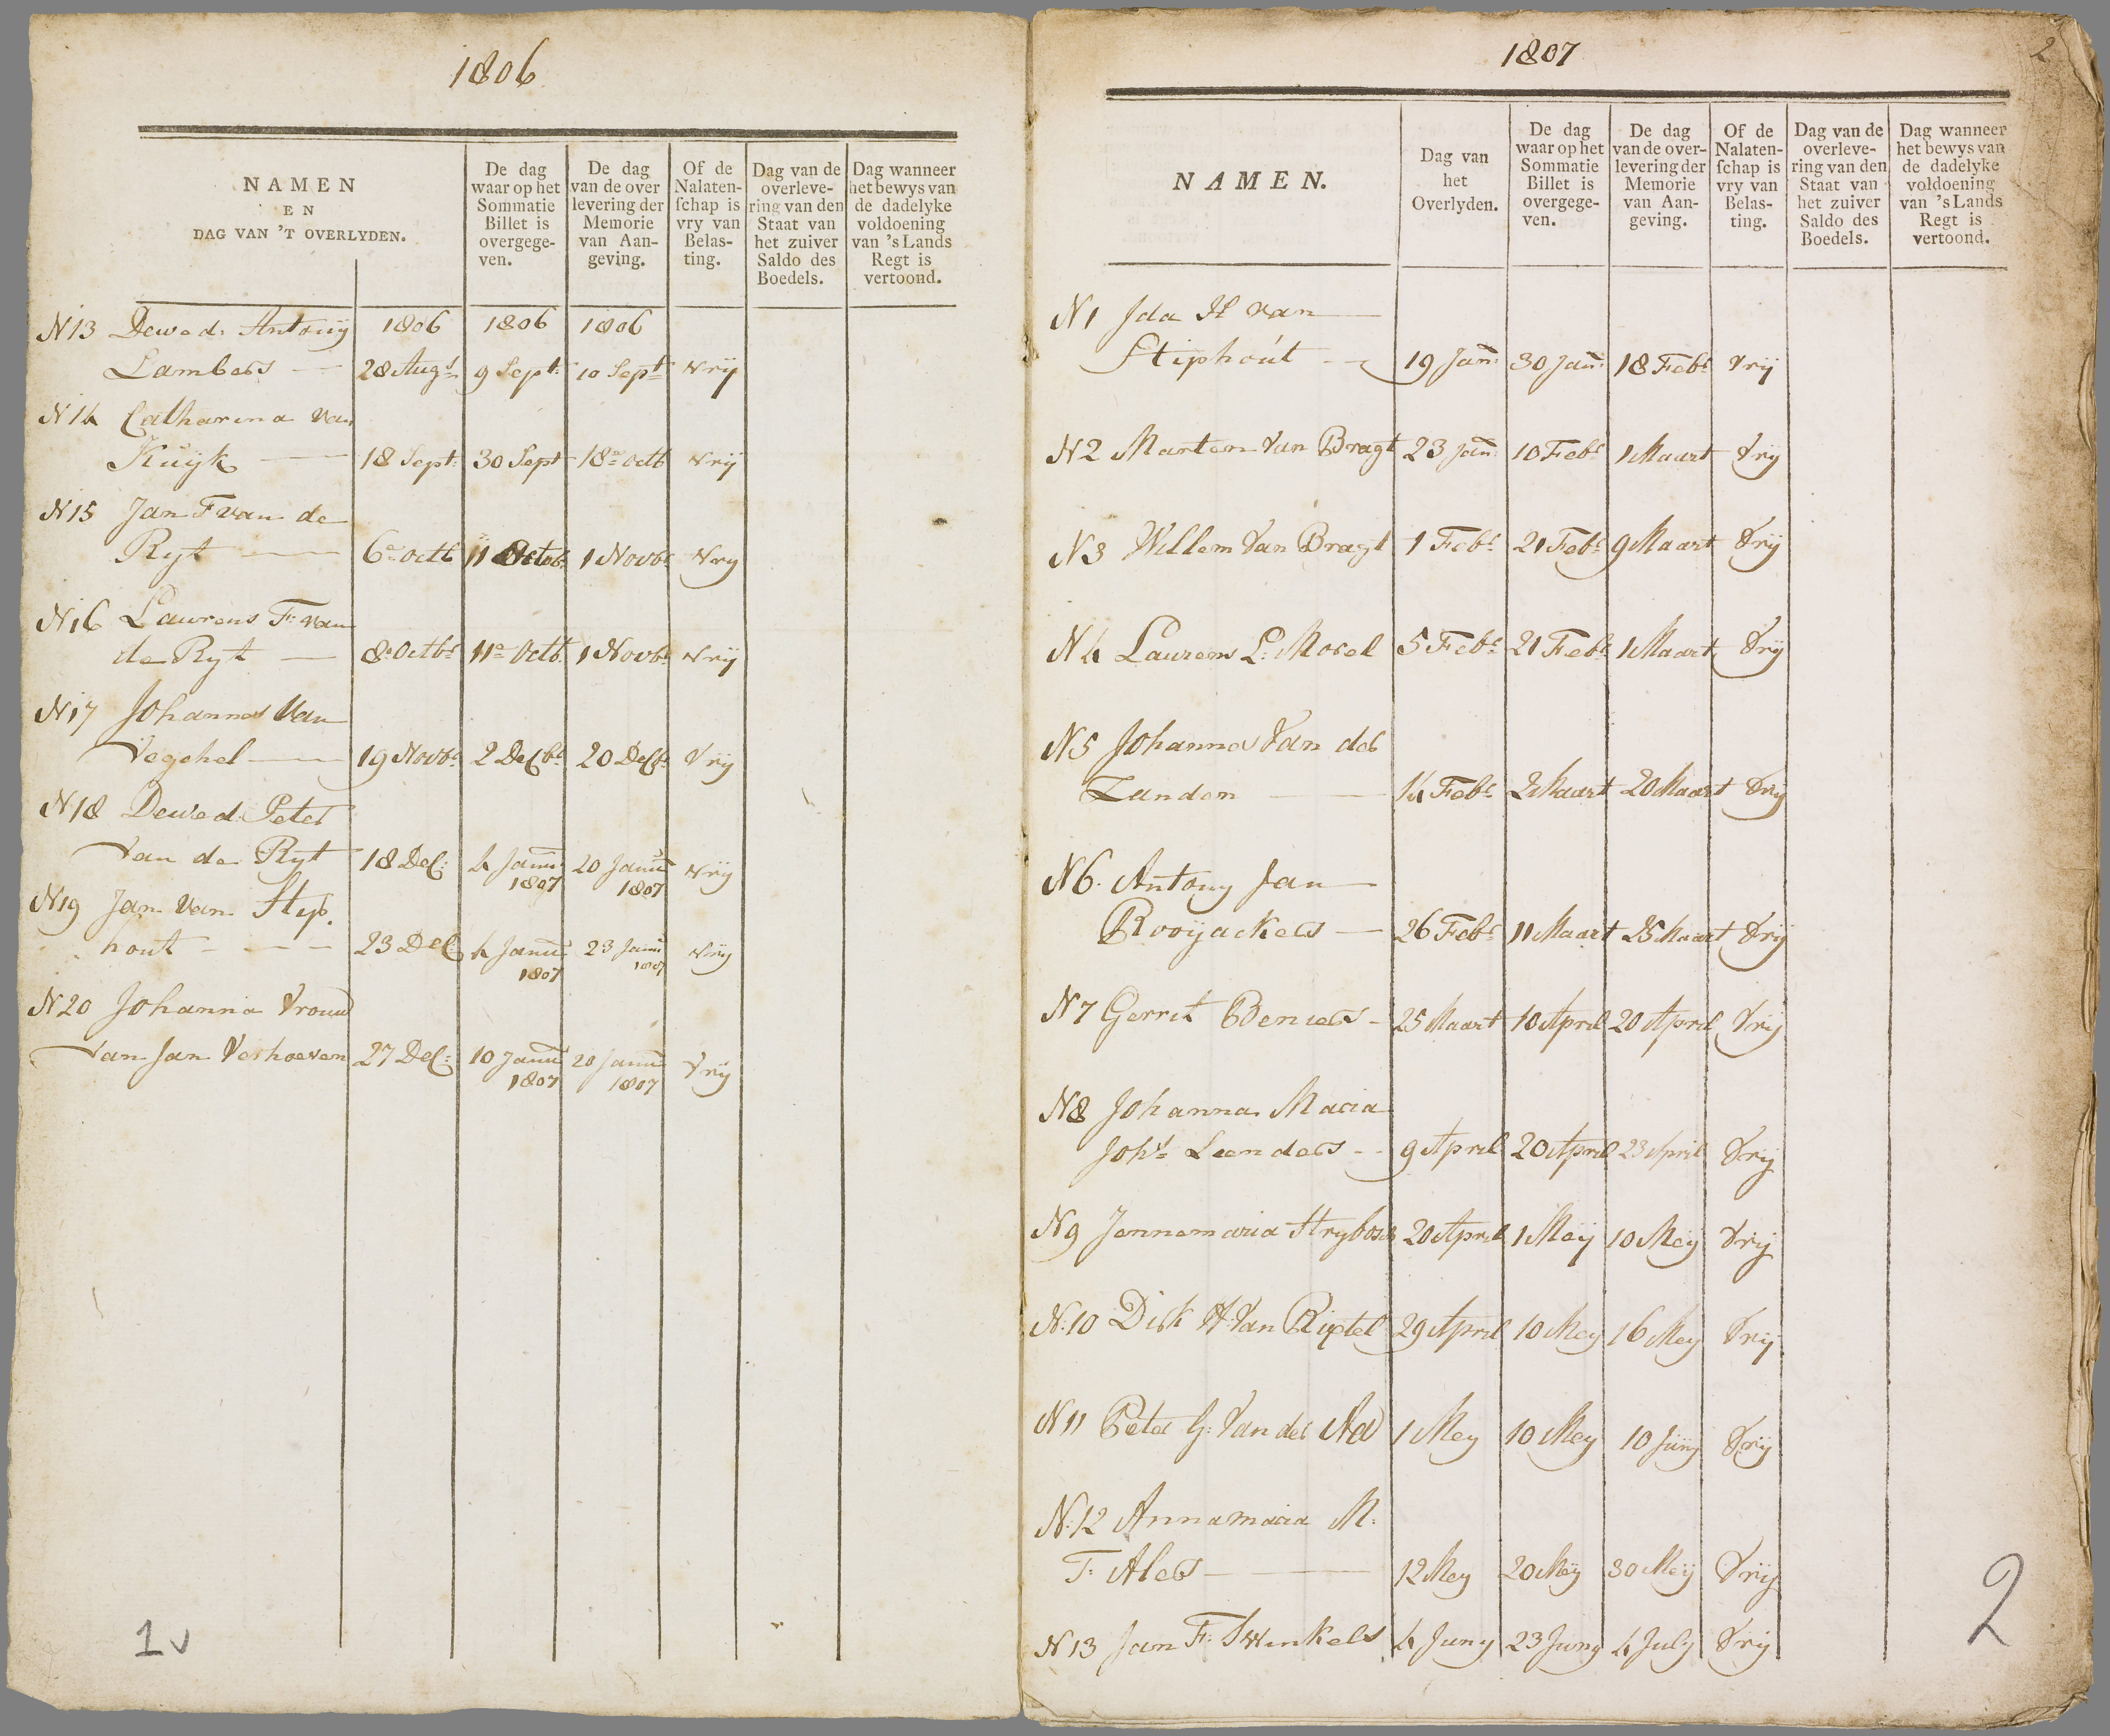 1806
NAMEN
EN
DAG VAN 'T OVERLYDEN.
De dag
waar op het
Sommatie
Billet is
overgege-
ven.
De dag
van de over
levering der
Memorie
van Aan-
geving.
Of de
Nalaten-
schap is
vry van
Belas-
ting.
Dag van de
overleve-
ring van den
Staat van
het zuiver
Saldo des
Boedels.
Dag wanneer
het bewys van
de dadelyke
voldoening
van 's Lands
Regt is
vertoond.
N13 Dewed: Antonij 1806 1806 1806
Lambers 28 Augt 9 Sept: 10 Sept: vrij
N14 Catharina van
Kuijk 18 Sept: 30 Sept 18 Octb vrij
N15 Jan F van de
Ryt 6 Octb 11 Octob: 1 Novbr vrij
N16 Laurens F: van
de Ryt 8 Octbr 11 Octb 1 Novbr vrij
N17 Johannes Van
Veghel 19 Novbr 2 Decbr 20 Decbr Vrij
N18 Dewed: Peter
Van de Ryt 18 Dec: 4 Janu: 1807 20 Janu: 1807 vrij
N19 Jan Van Styp
hout 23 Dec 4 Janu: 1807 23 Janu: 1807 vrij
N20 Johanna Vrouw
Van Jan Verhoeven 27 Dec: 10 Janu: 1807 20 Janu: 1807 Vrij
1v
1807
2
NAMEN.
Dag van
het
Overlyden.
De dag
waar op het
Sommatie
Billet is
overgege-
ven.
De dag
van de over-
levering der
Memorie
van Aan-
geving.
Of de
Nalaten-
schap is
vry van
Belas-
ting.
Dag van de
overleve-
ring van den
Staat van
het zuiver
Saldo des
Boedels.
Dag wanneer
het bewys van
de dadelyke
voldoening
van 's Lands
Regt is
vertoond.
N1 Ida H van
Stiphout 19 Jan: 30 Jan: 18 Febr Vrij
N2 Marten Van Bragt 23 Jan: 10 Febr 1 Maart Vrij
N3 Willem Van Bragt 1 Febr 21 Febr 9 Maart Vrij
N4 Laurens L: Morel 5 Febr 21 Febr 1 Maart Vrij
N5 Johannes Van der
Zanden 14 Febr 2 Maart 20 Maart Vrij
N6 Antony Jan
Rooijackers 26 Febr 11 Maart 25 Maart Vrij
N7 Gerrit Beniers 25 Maart 10 April 20 April Vrij
N8 Johanna Maria
Johs Leenders 9 April 20 April 23 April Vrij
N9 Jennemaria Strybosch 20 April 1 Meij 10 Meij Vrij
N:10 Dirk H: Van Rixtel 29 April 10 Mey 16 Mey Vrij
N11 Peter G: Van der Aa 1 Mey 10 Mey 10 Junij Vrij
N:12 Annamaria M:
F: Alers 12 Mey 20 Meij 30 Meij Vrij
N13 Jan F: Swinkels 4 Juny 23 Juny 4 July Vrij
2